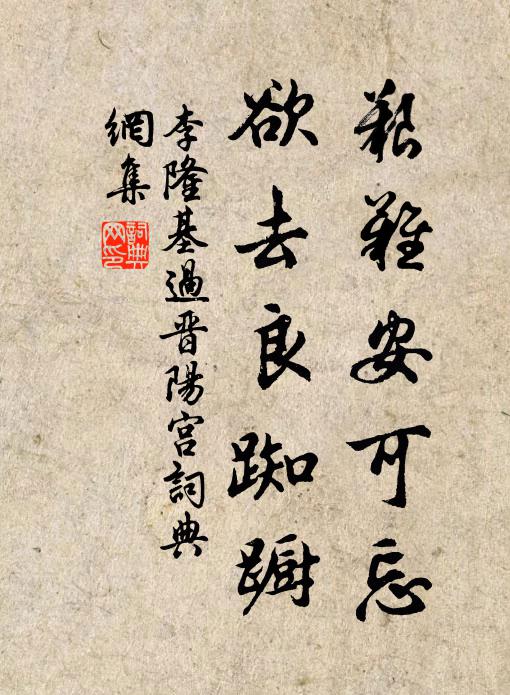 艱難安可忘
欲去良踟躕
李隆基過晉陽宮詞典
網集
詞典網印